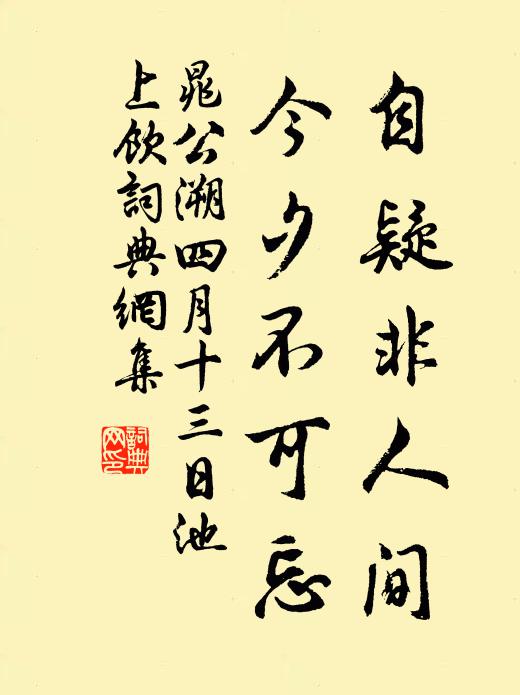 自疑非人间
今夕不可忘
晁公溯四月十三日池
上飲詞典網集
詞典
网印